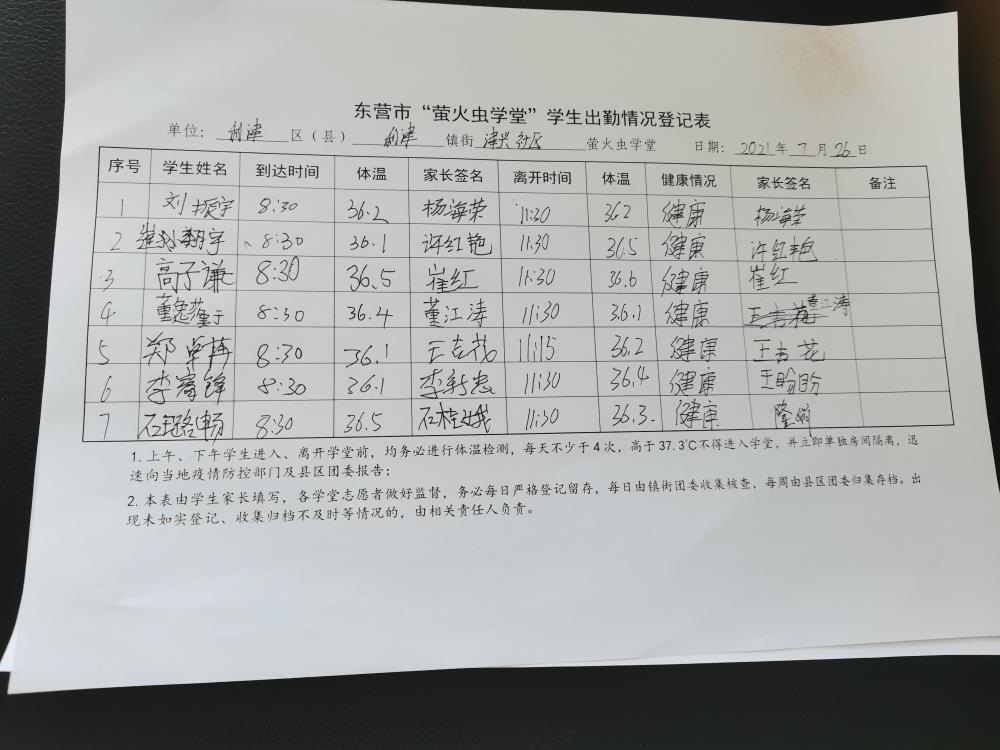 东营市“萤火虫学堂”学生出勤情况登记表
单位: 利津 区（县） 利津 镇街 津兴社区 萤火虫学堂 日期: 2021 年 7 月 26 日
序号 学生姓名 到达时间 体温 家长签名 离开时间 体温 健康情况 家长签名 备注
1 刘振宇 8:30 36.2 杨海荣 11:30 362 健康 杨海荣
2 翔宇 8:30 36.1 许红艳 11:30 36.5 健康 许红艳
3 高子谦 8:30 36.5 崔红 11:30 36.6 健康 崔红
4 8:30 36.4 董江涛 11:30 36.1 健康 董江涛
5 郑卓苒 8:30 36.1 王吉花 11:15 36.2 健康 王吉花
6 李睿锋 8:30 36.1 李新忠 11:30 36.4 健康 王盼盼
7 石璐畅 8:30 36.5 11:30 36.3. 健康
1. 上午、下午学生进入、离开学堂前，均务必进行体温检测，每天不少于4次，高于37.3℃不得进入学堂，并立即单独房间隔离，迅
速向当地疫情防控部门及县区团委报告；
2. 本表由学生家长填写，各学堂志愿者做好监督，务必每日严格登记留存，每日由镇街团委收集核查，每周由县区团委归集存档。出
现未如实登记、收集归档不及时等情况的，由相关责任人负责。